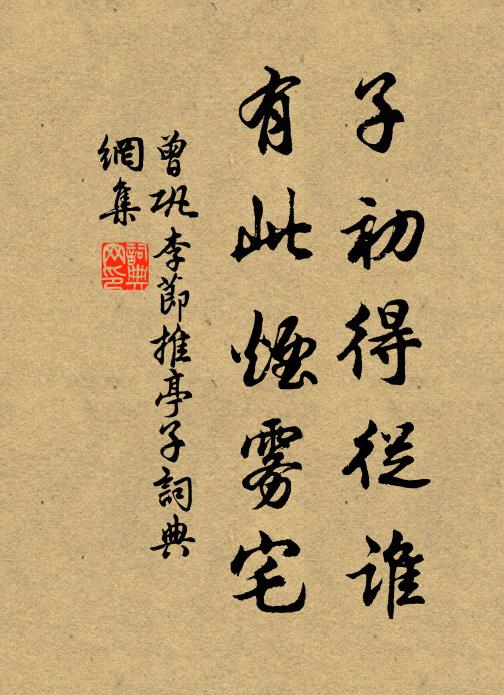 子初得從誰
有此煙雾宅
曾巩李節推亭子詞典
網集
詞典网印